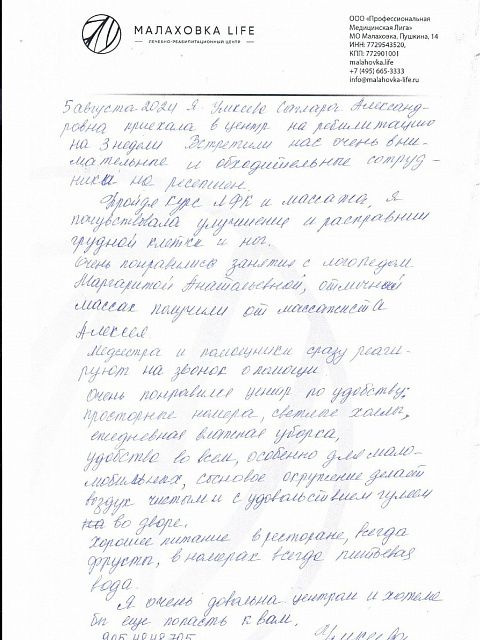 MALAXOVKA LIFE
ЛЕЧЕБНО-РЕАБИЛИТАЦИОННЫЙ ЦЕНТР
ООО «Профессиональная
Медицинская Лига»
МО Малаховка, Пушкина, 14
ИНН: 7729543520,
КПП: 772901001
malahovka.life
+7 (495) 665-3333
info@malahovka-life.ru
5 августа 2024 Я Александ-
ровна приехала в центр на
на 3 недели Встретили нас очень вни-
мательные и обходительные сотруд-
ники на
Пройдя курс ЛФК и массажа, я
почувствовала улучшение и
грудной клетки и ног.
Очень понравились занятия с логопедом
Маргаритой Анатольевной, отличный
массаж получили от массажиста
Алексея.
Медсестра и помощники сразу реаги-
руют на звонок о помощи.
Очень понравился центр по удобству:
просторные номера, светлые холлы,
ежедневная влажная уборка,
удобство во всем, особенно для мало-
мобильных, сосновое окружение делает
воздух чистым и с удовольствием гуляем
во дворе.
Хорошее питание в ресторане, всегда
фрукты, в номерах всегда питьевая
вода.
Я очень довольна центром и хотела
бы еще попасть к вам.